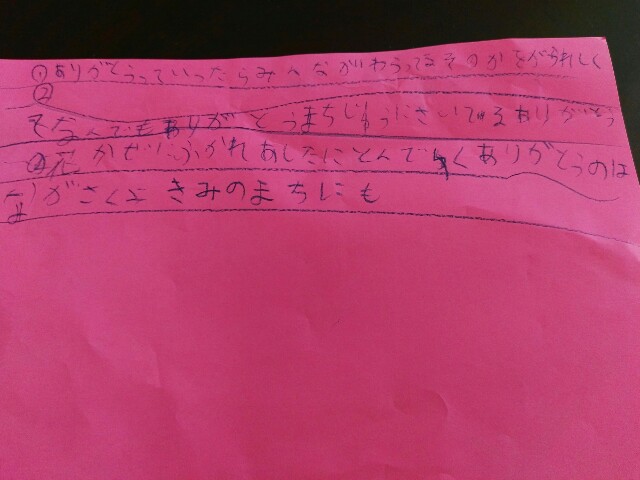 ①ありがとうっていったらみんながわらってるそのかをがうれしく
②
てなんでもありがとうまちじゅうにさいてゆるありがとう
④花かぜにふかれあしたにとんでゆくありがとうのは
ながさくよきみのまちにも